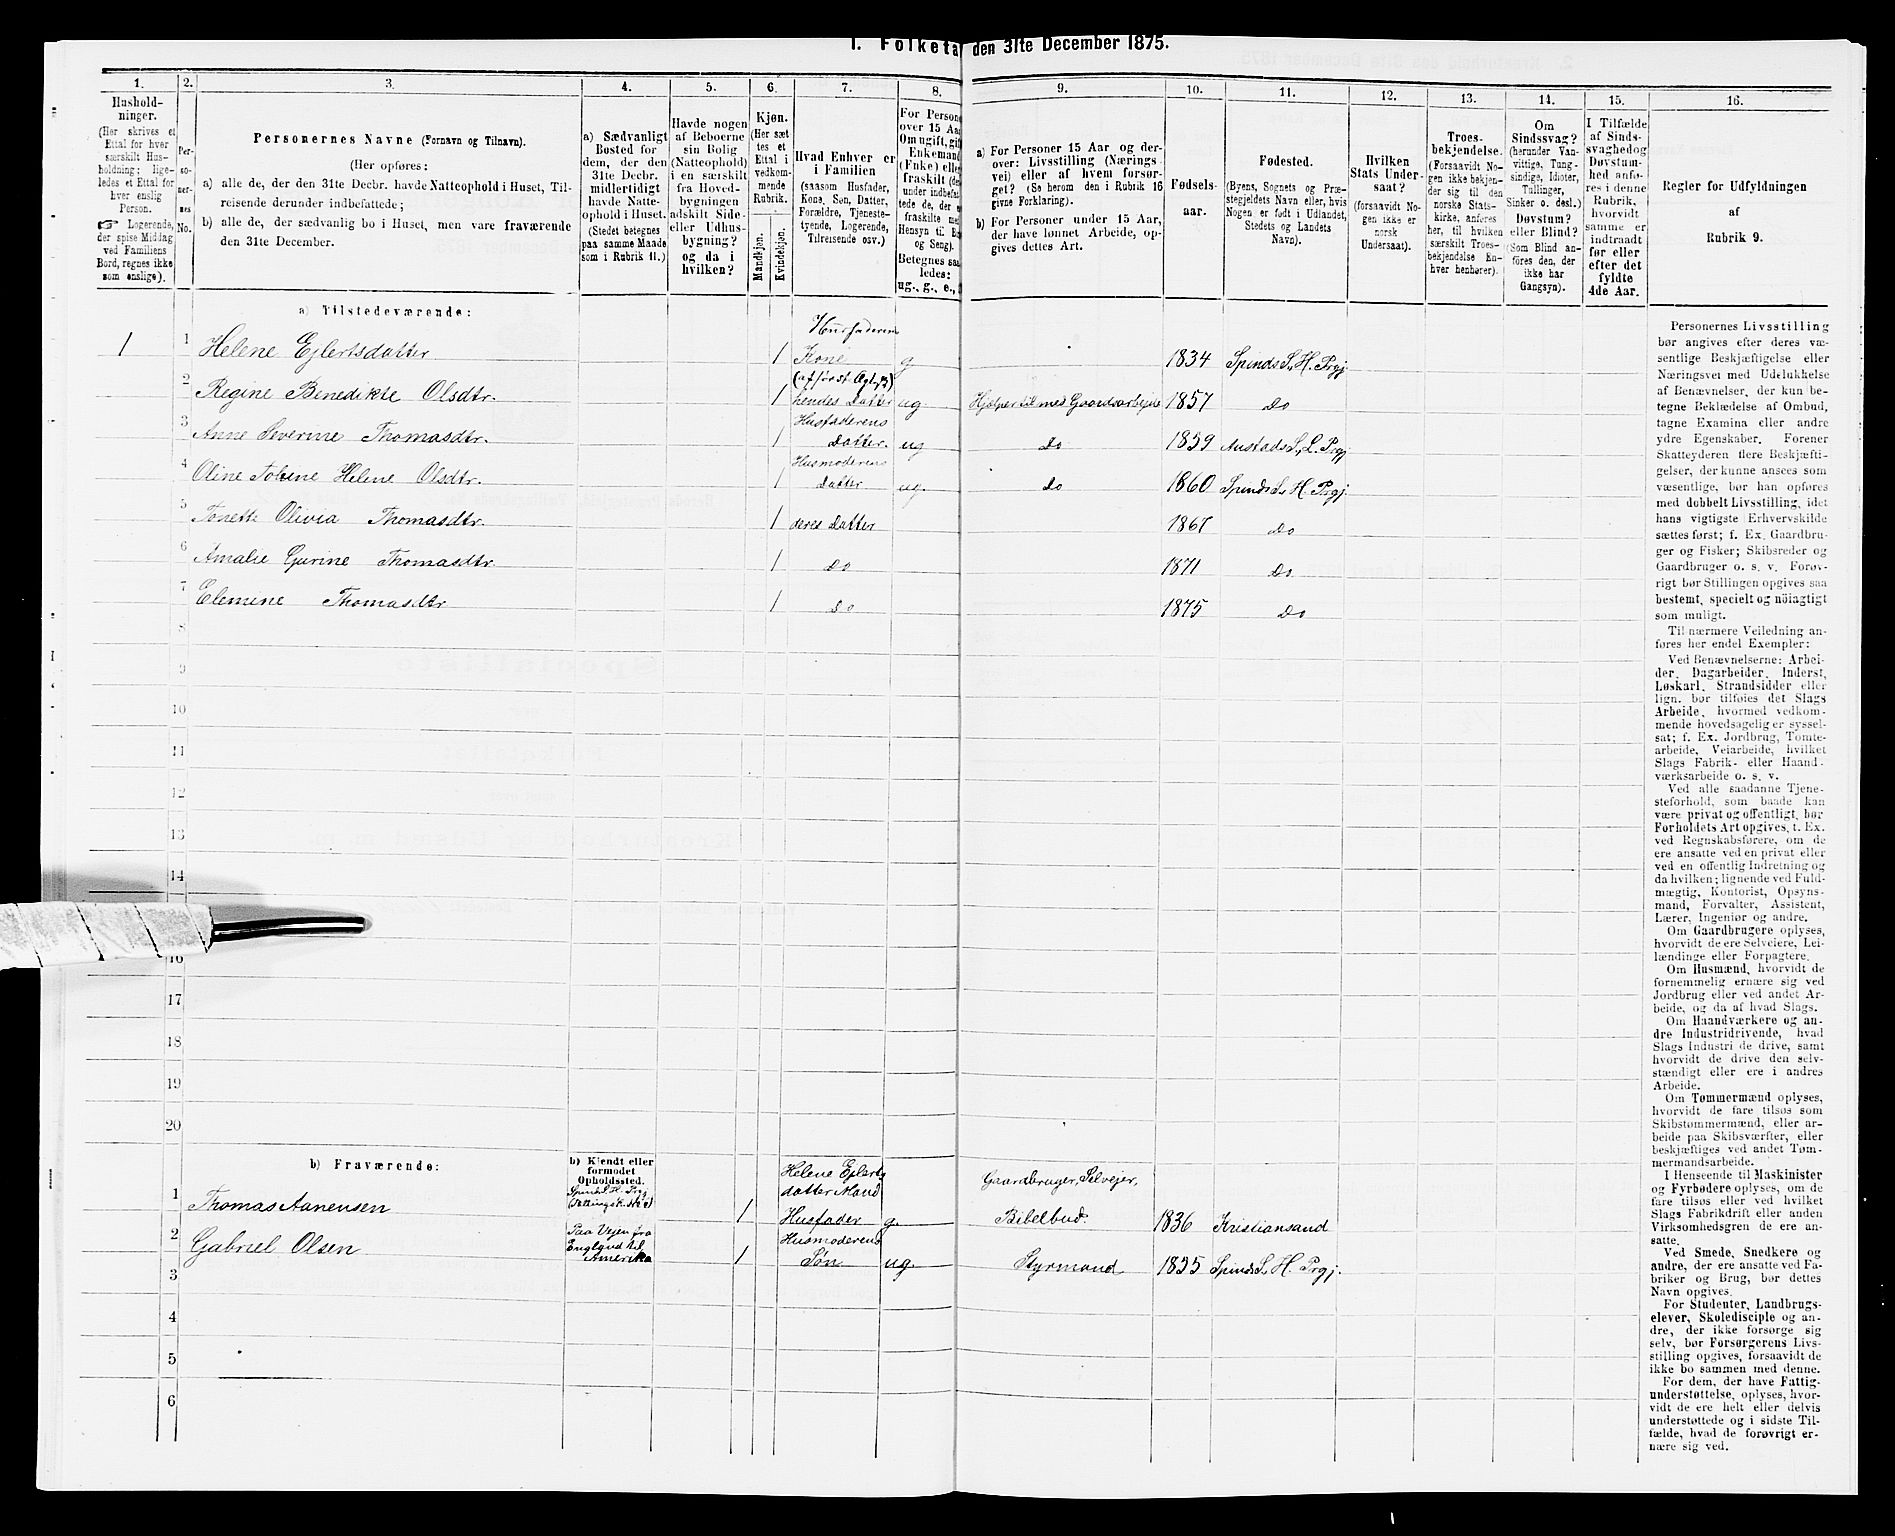 I. Folketa den 31te December 1875.
1. 2. 3. 4. 5. 6. 7. 8. 9. 10. 11. 12. 13. 14. 15. 16.
Hushold-
ninger.
(Her skrives et
Ettal for hver
særskilt Hus-
holdning; lige-
ledes et Ettal for
hver enslig
Person.
☞ Logerende,
der spise Middag
ved Familiens
Bord, regnes ikke
som enslige).
Per-
so-
ner-
nes
No.
Personernes Navne (Fornavn og Tilnavn).
(Her opføres:
a) alle de, der den 31te Decbr. havde Natteophold i Huset, Til-
reisende derunder indbefattede;
b) alle de, der sædvanlig bo i Huset, men vare fraværende
den 31te December.
a) Sædvanligt
Bosted for
dem, der den
31te Decbr.
midlertidigt
havde Natte-
ophold i Huset.
(Stedet betegnes
paa samme Maade
som i Rubrik 11.)
Havde nogen
af Beboerne
sin Bolig
(Natteophold)
i en særskilt
fra Hoved-
bygningen
adskilt Side-
eller Udhus-
bygning?
og da i
hvilken?
Kjøn.
(Her sæt
tes et
Ettal i
vedkom-
mende
Rubrik.
Mandkjøn.
Kvindekjøn.
Hvad Enhver er
i Familien
(saasom Husfader,
Kone, Søn, Datter,
Forældre, Tjeneste-
tyende, Logerende,
Tilreisende osv.)
For Persone
over 15 Aa
Om ugift, gif
Enkemand
(Enke) elle
fraskilt (de
under indbefat
tede de, der e
fraskilte me
Hensyn til Bo
og Seng).
Betegnes saa
ledes:
ug., g., e.,
a) For Personer 15 Aar og der-
over: Livsstilling (Nærings
vei) eller af hvem forsør-
get? (Se herom den i Rubrik 16
givne Forklaring).
b) For Personer under 15 Aar,
der have lønnet Arbeide, op-
gives dettes Art.
Fødsels-
aar.
Fødested.
(Byens, Sognets og Præ-
stegjeldets Navn eller, hvis
Nogen er født i Udlandet,
Stedets og Landets
Navn).
Hvilken
Stats Under-
saat?
(forsaavidt No-
gen ikke er
norsk
Undersaat).
Troes-
bekjendelse.
(Forsaavidt No-
gen ikke bekjen-
der sig til den
norske Stats-
kirke, anføres
her, til hvilken
særskilt Troes-
bekjendelse En-
hver henhører).
Om
Sindssvag?
(herunder Van-
vittige, Tung-
sindige, Idioter,
Tullinger,
Sinker o. desl.)
Døvstum?
eller Blind?
(Som Blind an-
føres den, der
ikke har
Gangsyn).
I Tilfælde
af Sinds-
svaghedog
Døvstum-
hed anfø-
res i denne
Rubrik,
hvorvidt
samme er
indtraadt
før eller
efter det
fyldte
4de Aar.
Regler for Udfyldningen
af
Rubrik 9.
a) Tilstedeværende:
1 1 Helene Ejlertsdatter 1 Husfaderens Kone g 1834 Spinds S., H. Prgj
2 Regine Benedikte Olsdtr. 1 (af først Ægtsk) hendes Datter ug. Hjelper til med Gaardsarbejde 1857 Do
3 Anne Severine Thomasdtr. 1 Husfaderens Datter. ug Do 1859 Austads S., L. Prgj
4 Oline Tobine Helene Olsdtr. 1 Husmoderens Datter ug. Do 1860 Spinds S. H. Prgj.
5 Tonette Olivia Thomasdtr. 1 deres Datter 1867 Do
6 Amalie Gurine Thomasdtr 1 Do 1871 Do
7 Elemine Thomasdtr 1 Do 1875 Do
8
9
10
11
12
13
14
16
17
18
19
20
b) Fraværende:
b) Kjendt eller
formodet
Opholdssted.
1 Thomas Aanensen Spinds S. H. Prgj 1 Helene Ejlerts datter Mand Husfader g. Gaardbruger, Selvejer, Bibelbud. 1836 Kristiansand
2 Gabriel Olsen Paa Vejen fra England til Amerika 1 Husmoderens Søn ug. Styrmand 1855 Spinds S. H. Prgj.
3
4
5
6
Personernes Livsstilling
bør angives efter deres væ-
sentlige Beskjæftigelse eller
Næringsvei med Udelukkelse
af Benævnelser, der kun be-
tegne Beklædelse af Ombud,
tagne Examina eller andre
ydre Egenskaber. Forener
Skatteyderen flere Beskjæfti-
gelser, der kunne ansees som
væsentlige, bør han opføres
med dobbelt Livsstilling, idet
hans vigtigste Erhvervskilde
sættes først; f. Ex. Gaardbru-
ger og Fisker; Skibsreder og
Gaardbruger o. s. v. Forøv-
rigt bør Stillingen opgives saa
bestemt, specielt og nöiagtigt
som muligt.
Til nærmere Veiledning an-
føres her endel Exempler:
Ved Benævnelserne: Arbei-
der, Dagarbeider, Inderst,
Løskarl, Strandsidder eller
lign. bør tilføies det Slags
Arbeide, hvormed vedkom-
mende hovedsagelig er syssel-
sat; f. Ex. Jordbrug, Tomte-
arbeide, Veiarbeide, hvilket
Slags Fabrik- eller Haand-
værksarbeide o. s. v.
Ved alle saadanne Tjene-
steforhold, som baade kan
være privat og offentligt, bør
Forholdets Art opgives, t. Ex.
ved Regnskabsførere, om de
ere ansatte ved en privat eller
ved en offentlig Indretning og
da hvilken; lignende ved Fuld-
mægtig, Kontorist, Opsyns-
mand, Forvalter, Assistent,
Lærer, Ingeniør og andre.
Om Gaardbrugere oplyses,
hvorvidt de ere Selveiere, Lei-
lændinge eller Forpagtere.
Om Husmænd, hvorvidt de
fornemmelig ernære sig ved
Jordbrug eller ved andet Ar-
beide, og da af hvad Slags.
Om Haandværkere og an-
dre Industridrivende, hvad
Slags Industri de drive, samt
hvorvidt de drive den selv-
stændigt eller ere i andres
Arbeide.
Om Tømmermænd oplyses,
hvorvidt de fare tilsøs som
Skibstømmermænd, eller ar-
beide paa Skibsværfter, eller
beskjæftiges ved andet Tøm-
mermandsarbeide.
I Henseende til Maskinister
og Fyrbødere oplyses, om de
fare tilsøs eller ved hvilket
Slags Fabrikdrift eller anden
Virksomhedsgren de ere an-
satte.
Ved Smede, Snedkere og
andre, der ere ansatte ved Fa-
briker og Brug, bør dettes
Navn opgives.
For Studenter, Landbrugs-
elever, Skoledisciple og an-
dre, der ikke forsørge sig
selv, bør Forsørgerens Livs-
stilling opgives, forsaavidt de
ikke bo sammen med denne.
For dem, der have Fattig-
understøttelse, oplyses, hvor-
vidt de ere helt eller delvis
understøttede og i sidste Til-
fælde, hvad de forøvrigt er-
nære sig ved.